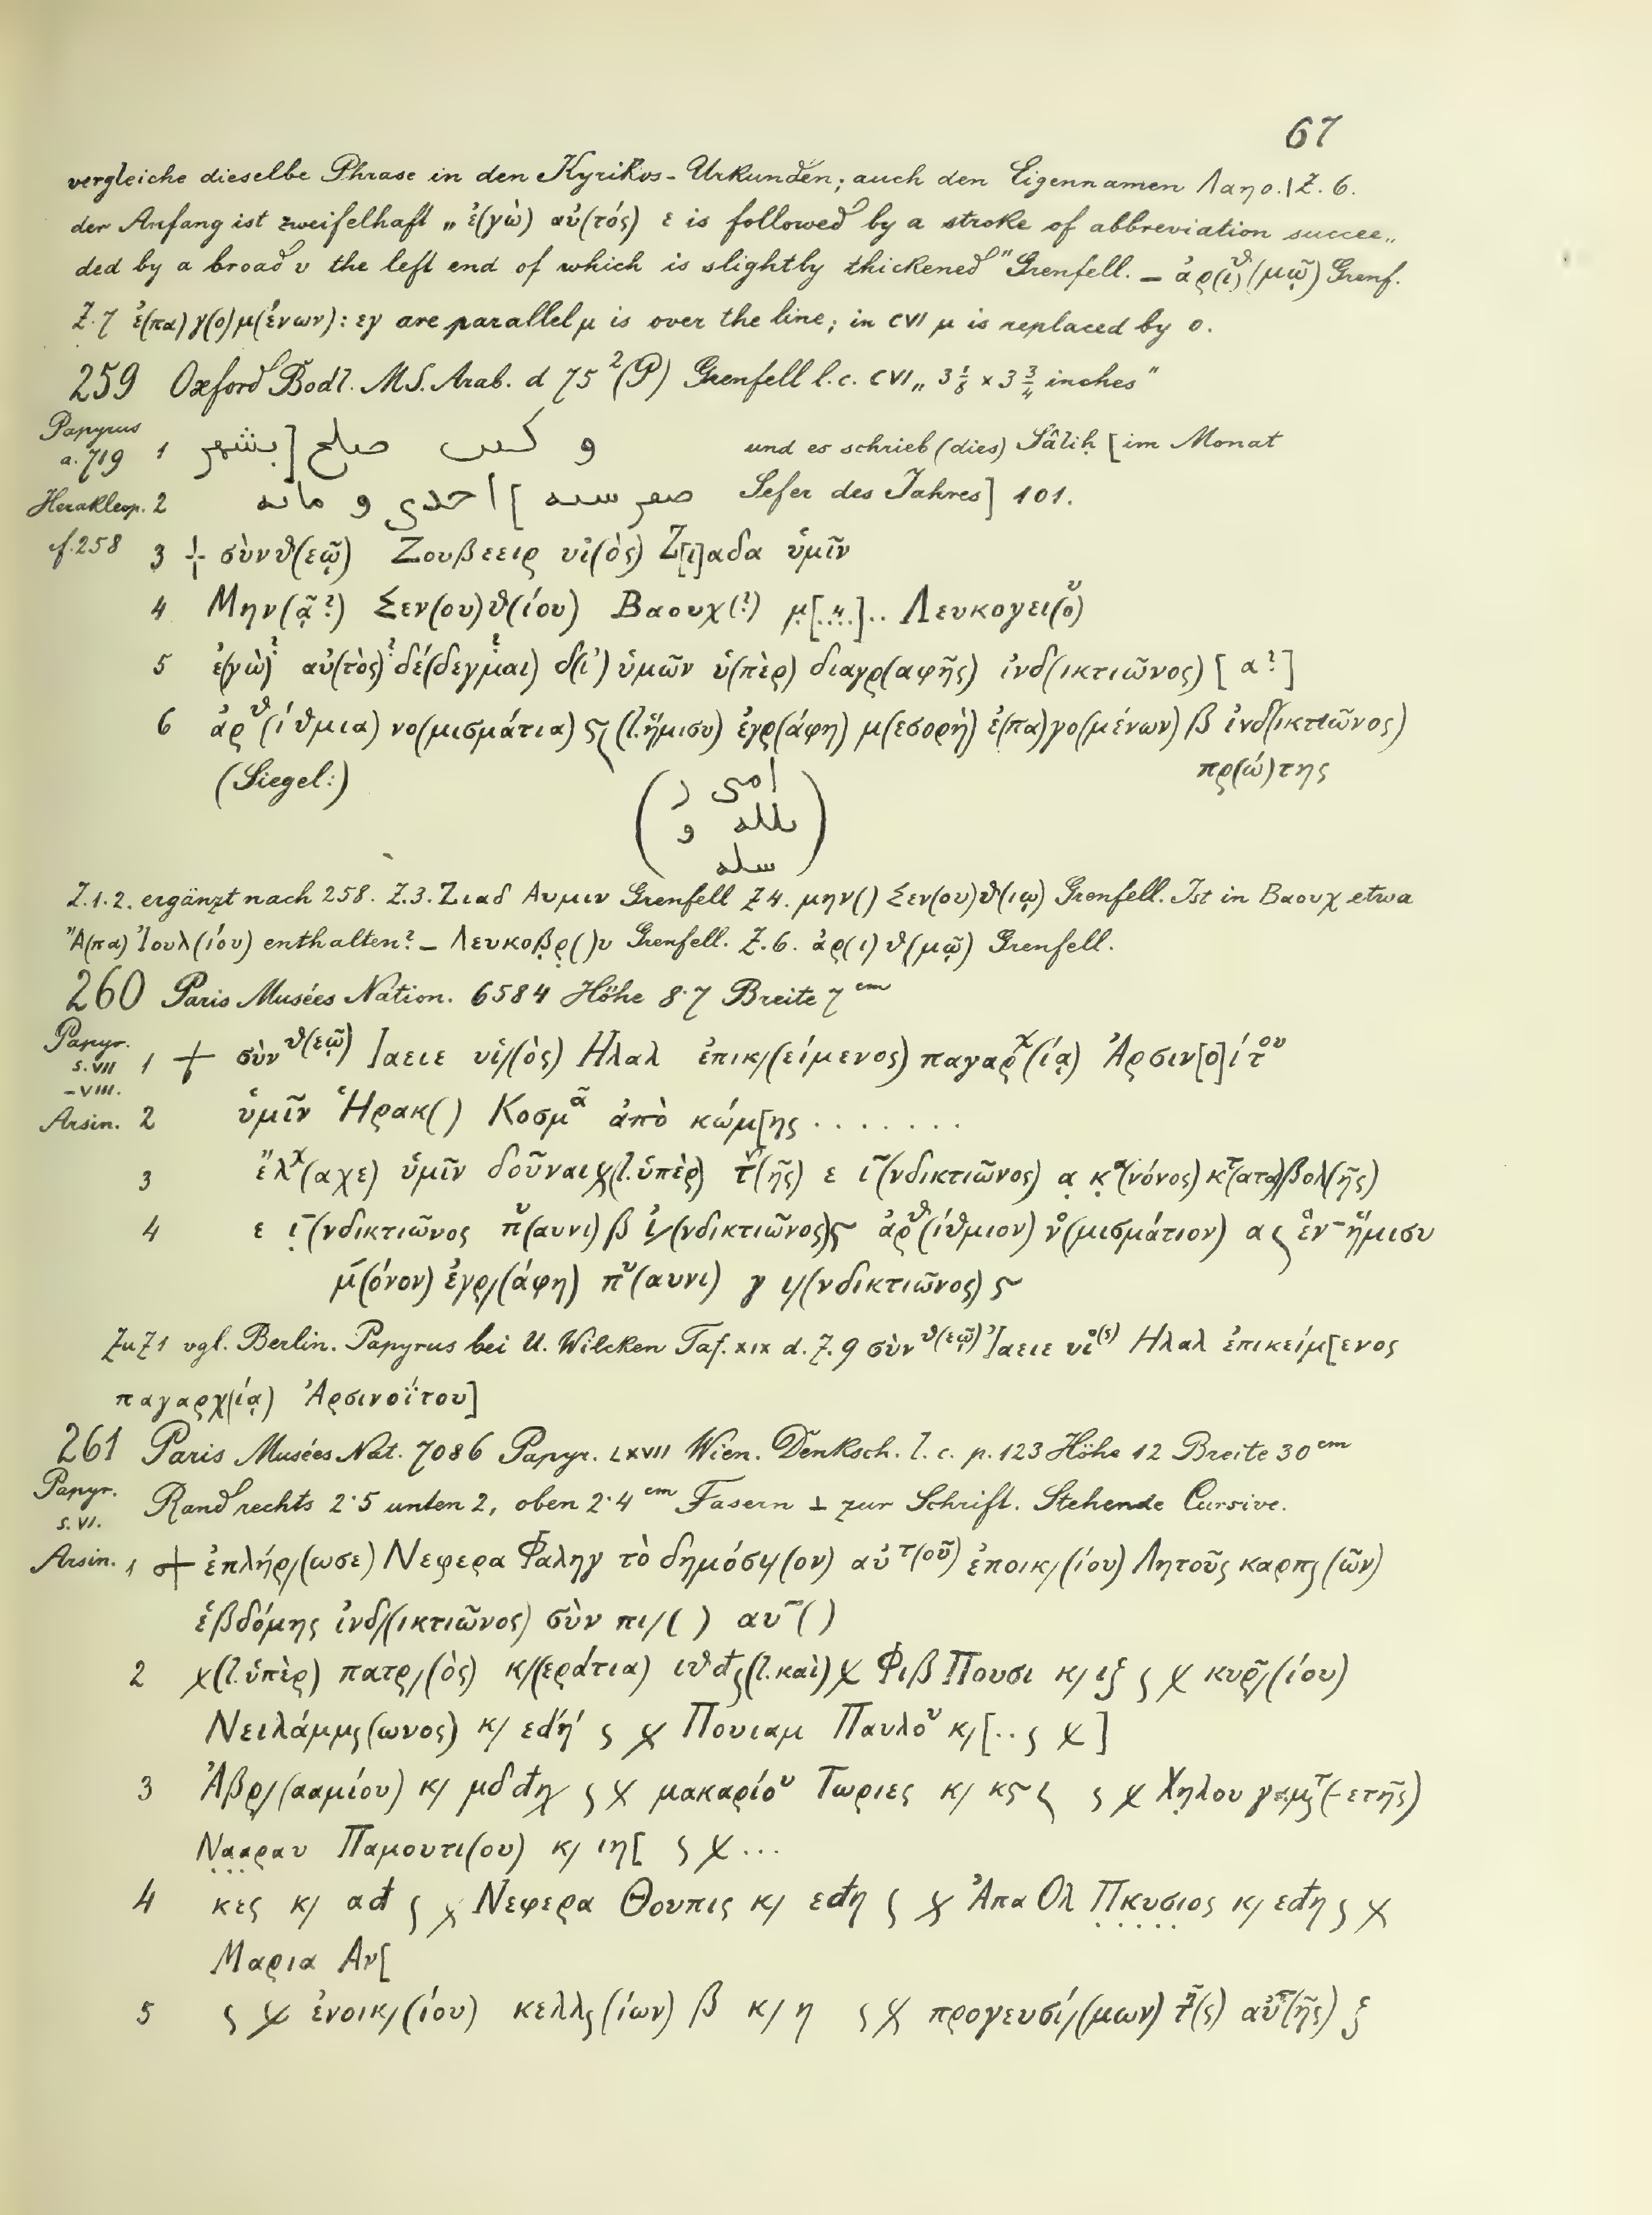 67
vergleiche dieselbe Phrase in den Kyrikos-Urkunden; auch den Eigennamen Λαηο.| Z. 6.
der Anfang ist zweifelhaft „ ἐ(γὼ) αὐ(τός) ε is followed by a stroke of abbreviation succee„
ded by a broad υ the left end of which is slightly thickened" Grenfell. – ἀρ(ι)θ(μῷ) Grenf.
Z. 7 ἐ(πα)γ(ο)μ(ένων): εγ are parallel μ is over the line; in CVI μ is replaced by ο.
259 Oxford Bodl. MS. Arab. d 75 ²(P) Grenfell l. c. CVI „ 3 1/8 x 3 3/4 inches"
Papyrus a. 719 1 و كتب صلح [بشهر und es schrieb (dies) Sâliḥ [im Monat
Herakleop. 2 صفر سنه] احدى و مائه Sefer des Jahres] 101.
cf. 258 3 + σὺνθ(εῷ) Ζουβεειρ υἱ(ὸς) Ζ[ι]αδα ὑμῖν
4 Μην(ᾷ?) Σεν(ου)θ(ίου) Βαουχ(?) μ[.4.].. Λευκογει(ο)ῦ
5 ἐ(γὼ)? αὐ(τὸς)? δέ(δεγμαι)? δ(ι') ὑμῶν ὑ(πὲρ) διαγρ(αφῆς) ἰνδ(ικτιῶνος) [ α? ]
6 ἀρθ(ίθμια) νο(μισμάτια) ς (l. ἥμισυ) ἐγρ(άφη) μ(εσορὴ) ἐ(πα)γο(μένων) β ἰνδ(ικτιῶνος)
(Siegel:) πρ(ώ)της
امىر
بالله و
سله
Z. 1. 2. ergänzt nach 258. Z. 3. Ζιαδ Αυμιν Grenfell Z 4. μην() Σεν(ου)θ(ιῳ) Grenfell. Ist in Βαουχ etwa
"Α(πα) Ἰουλ(ίου) enthalten? – Λευκοβρ()υ Grenfell. Z. 6. ἀρ(ι)θ(μῷ) Grenfell.
260 Paris Musées Nation. 6584 Höhe 8·7 Breite 7 cm
Papyr. s. VII –VIII. 1 + σὺν θ(εῷ) Ιαειε υἱ/(ὸς) Ηλαλ ἐπικ/(είμενος) παγαρχ(ίᾳ) Ἀρσιν[ο]ίτου
Arsin. 2 ὑμῖν Ἡρακ() Κοσμᾶ ἀπὸ κώμ[ης .......
3 ἔλχ(αχε) ὑμῖν δοῦναι χ(l. ὑπὲρ) τ(ῆς) ε ι(νδικτιῶνος) α κα(νόνος) κτ(ατα)βολ(ῆς)
4 ε ι(νδικτιῶνος πυ(αυνι) β ι/(νδικτιῶνος)ς ἀρθ(ίθμιον) νο(μισμάτιον) α ς ἓν ἥμισυ
μ(όνον) ἐγρ/(άφη) πυ(αυνι) γ ι/(νδικτιῶνος) ς
Zu Z 1 vgl. Berlin. Papyrus bei U. Wilcken Taf. XIX d. Z. 9 σὺν θ(εῷ) Ἰαειε υἱο(ς) Ηλαλ ἐπικείμ[ενος
παγαρχ(ίᾳ) Ἀρσινοΐτου]
261 Paris Musées Nat. 7086 Papyr. LXVII Wien. Denksch. l. c. p. 123 Höhe 12 Breite 30 cm
Papyr. s. VI. Rand rechts 2·5 unten 2, oben 2·4 cm Fasern ⊥ zur Schrift. Stehende Cursive.
Arsin. 1 + ἐπλήρ/(ωσε) Νεφερα Φαληγ τὸ δημόσι/(ον) αὐτ(οῦ) ἐποικ/(ίου) Λητοῦς καρπς(ῶν)
ἑβδόμης ἰνδ/(ικτιῶνος) σὺν πι/( ) αυ–( )
2 χ(l. ὑπὲρ) πατρ/(ὸς) κ/(εράτια) ιθ đ ς (l. καὶ) χ Φιβ Πουσι κ/ ιξ ς χ κυρ/(ίου)
Νειλάμμς(ωνος) κ/ εđή ς χ Πουιαμ Παυλου κ/[.. ς χ ]
3 Ἀβρ/(ααμίου) κ/ μδ đη ς χ μακαρίου Τωριες κ/ κς ς ς χ Χηλου γαμςτ(-ετῆς)
Νααραυ Παμουτι(ου) κ/ ιη[ ς χ ...
4 κες κ/ αđ ς χ Νεφερα Θουπις κ/ εđη ς χ Ἀπα Ολ Πκυσιος κ/ εđη ς χ
Μαρια Αν[
5 ς χ ἐνοικ/(ίου) κελλς(ίων) β κ/ η ς χ προγευσί/(μων) τῆ(ς) αὐτ(ῆς) ξ